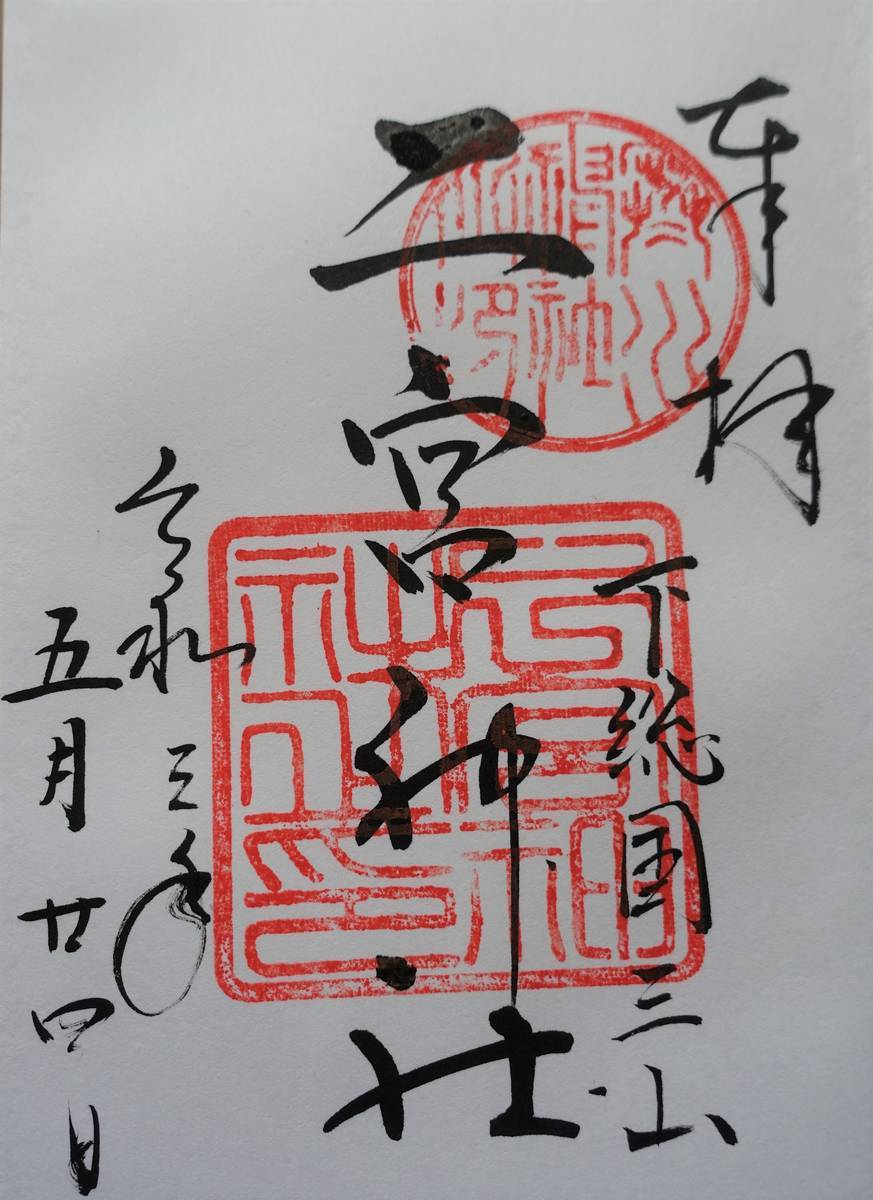 奉拝
下総国三山
二宮神社
令和三年
五月廿四日